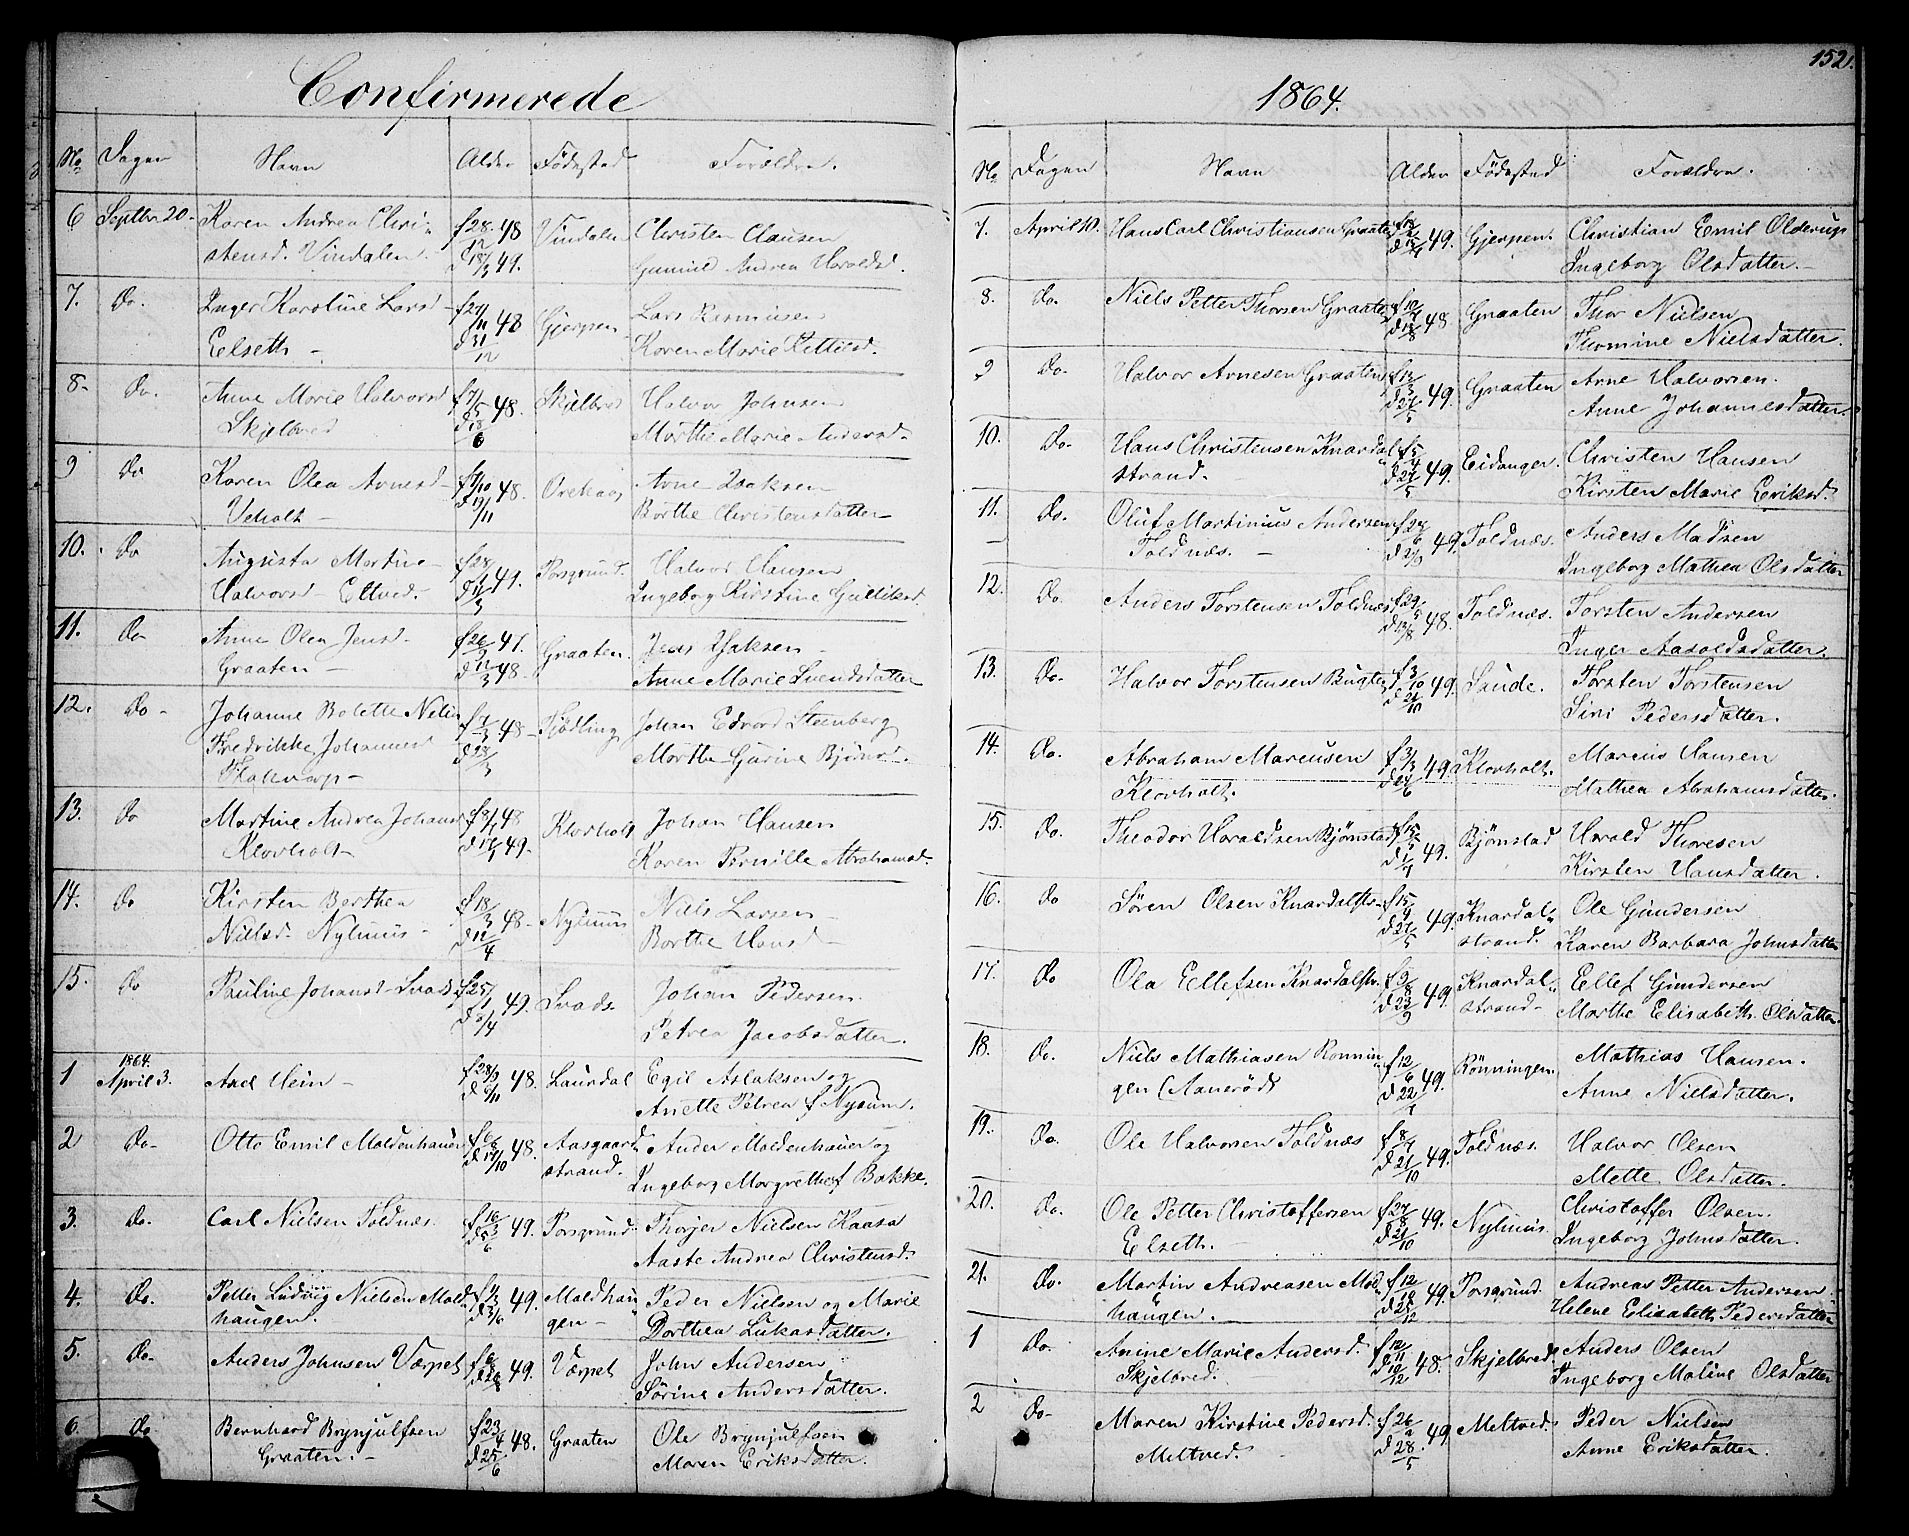 Confirmerede
No Dagen Navn Alder Födested Forældre.
6 Septbr. 20. Karen Andrea Chri- f 28/12 48 Vindalen Christen Clausen
stensd. Vindalen. d 18/3 49. Gunild Andrea Haraldsd.
7. Do. Inger Karoline Larsd f 27/11 48 Gjerpen Lars Rasmusen
Eelseth d 31/12 Karen Marie Kettilsd.
8. Do. Anne Marie Halvorsd f 7/5 48. Skjelbred Halvor Johnsen
Skjelbred d 18/6 Marthe Marie Andersd.
9 Do Karen Olea Arnesd f 7/10 48. Arne Isaksen
Veholt d 19/11 Borthe Christensdatter
10. Do Augusta Martine f 28/1 49. Porsgrund. Halvor Hansen
Halvorsd. Eltved. d 11/3 Ingeborg Kirstine Gulliksd.
11. Do Anne Olea Jensd f 26/12 47. Graaten. Jens Isaksen
Graaten d 12/3 48 Anne Marie Svendsdatter
12. Do Johanne Bolette Nelin f 7/3 48 Tjödling Johan Edvard Steenberg
Fredrikke Johannesd d 28/5 Marthe Gurine Björnsd.
13. Do Martine Andrea Johansd f 8/1 48 Klovholt Johan Hansen
Klovholt d 49. Karen Pernille Abrahamsd.
14. Do Kirsten Berthea f 18/3 48 Nyhuus Niels Larsen
Nielsd. Nyhuus d 12/4 Borthe Hansd
15. Do Pauline Johansd. Svads f 25/1 49. Svads. Johan Pedersen.
d 8/4 Petrea Jacobsdatter.
1864.
1 April 3. Axel Hein f 28/9 48. Laurdal Egil Aslaksen og
d 6/11 Anette Petrea f Nysum.
2 Do Otto Emil Moldenhauer f 6/8 48. Aasgaard Ander Moldenhauer og
d 17/10 strand. Ingeborg Morgrethe f Bakke.
3. Do. Carl Nielsen Toldnæs. f 16/3 49. Porsgrund. Thorjer Nielsen Kaasa
d 5/6 Aaste Andrea Christensd.
4. Do. Petter Ludvig Nielsen Mold f 1/3 49. Moldhau Peder Nielsen og Marie
haugen. d 3/6 gen Dorthea Lukasdatter.
5. Do Anders Johnsen Værpet f 6/3 49. Værpet John Andersen
d Sörine Andersdatter.
6. Do Bernhard Brynjulfsen f 23/4 48. Graaten Ole Brynjulfsen
Graaten. d 25/6 Maren Eriksdatter.
152.
1864.
No Dagen Navn Alder Födested Forældre.
7. April 10. Hans Carl Christiansen Graaten 49. Gjerpen. Christian Emil Olderup
Ingeborg Olsdatter.
8. Do. Niels Petter Thorsen Graaten f 12/7 48 Graaten Thor Nielsen
d 13/8 Thormine Nielsdatter.
9 Do. Halvor Arnesen Graaten f 13/3 49. Graaten Arne Halvorsen.
d 27/5 Anne Johannesdatter.
10. Do. Hans Christensen Knardal f 5/4 49. Eidanger. Christen Hansen
strand. d 27/5 Kirsten Marie Eeriksd.
11. Do. Oluf Martinius Andersen f 24/6 49. Toldnæs. Anders Madsen
Toldnæs. d 2/9 Ingeborg Mathea Olsdatter
12. Do. Anders Torstensen Toldnæs f 29/5 48. Toldnæs. Torsten Andersen
d 13/8 Inger Aasoldsdatter.
13. Do. Halvor Torstensen Bugten f 3/10 49. Saude. Torsten Torstensen
d 21/10 Siri Pedersdatter.
14. Do. Abraham Marcusen f 3/3 49. Klovholt. Marcus Hansen
Klovholt. d 24/6 Mathea Abrahamsdatter.
15. Do. Theodor Haraldsen Bjønstad f 15/5 49. Bjønstad Harald Thoresen
d 1/7 Kirsten Hansdatter.
16. Do Sören Olsen Knardalstr. f 15/4 49. Knardal Ole Gundersen
d 27/5 strand. Karen Barbara Johnsdatter
17. Do Ola Eellefsen Knardalstr. f 3/8 49. Knardal Eellef Gundersen
d 23/9 strand Marthe Elisabeth Olsdatter.
18. Do. Niels Mathiasen Ronnin f 12/6 49. Rönningen. Mathias Hansen.
gen (Aanerød) d 22/7 Anne Nielsdatter.
19. Do. Ole Halvorsen Toldnæs f 8/9 49. Toldnæs. Halvor Olsen
d 21/10 Mette Olsdatter.
20. Do. Ole Petter Christoffersen f 27/8 49. Nyhuus. Christoffer Olsen.
Eelseth. d 21/10 Ingeborg Johnsdatter.
21. Do. Martin Andreasen Mold f 12/10 49. Porsgrund. Andreas Petter Andersen
haugen. d 25/12 Helene Eelisabeth Pedersdatter
1 Do. Anine Marie Andersd. f 12/11 48. Skjelbred. Anders Olsen
Skjelbred. d 10/12 Ingeborg Maline Olsdatter
2 Do Maren Kirstine Pedersd. f 26/2 49. Meltved. Peder Nielsen
Meltved. d 28/5 Anne Eriksdatter.